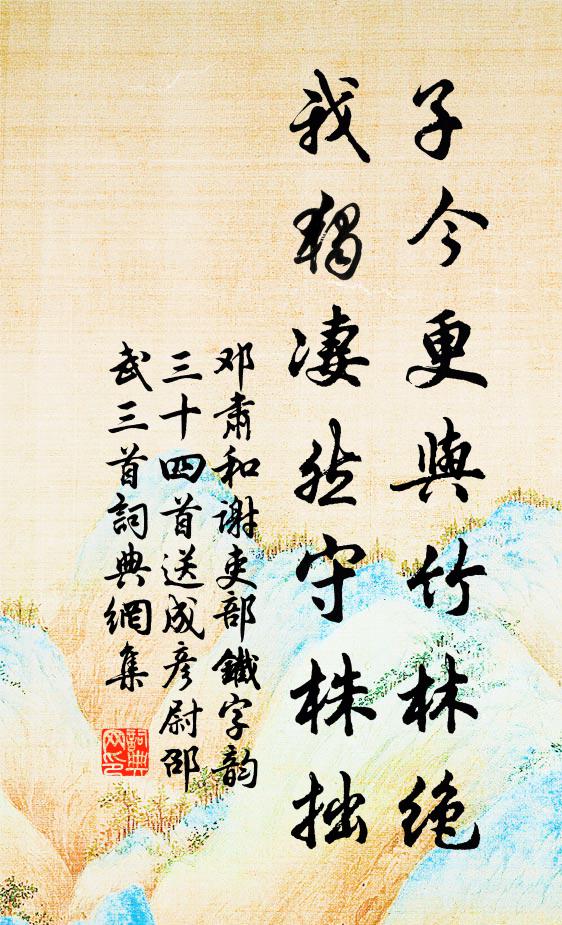 子今更與竹林絶
我獨凄然守株拙
邓肅和谢吏部鐵字韵
三十四首送成彦尉邵
武三首詞典網集
詞典網印